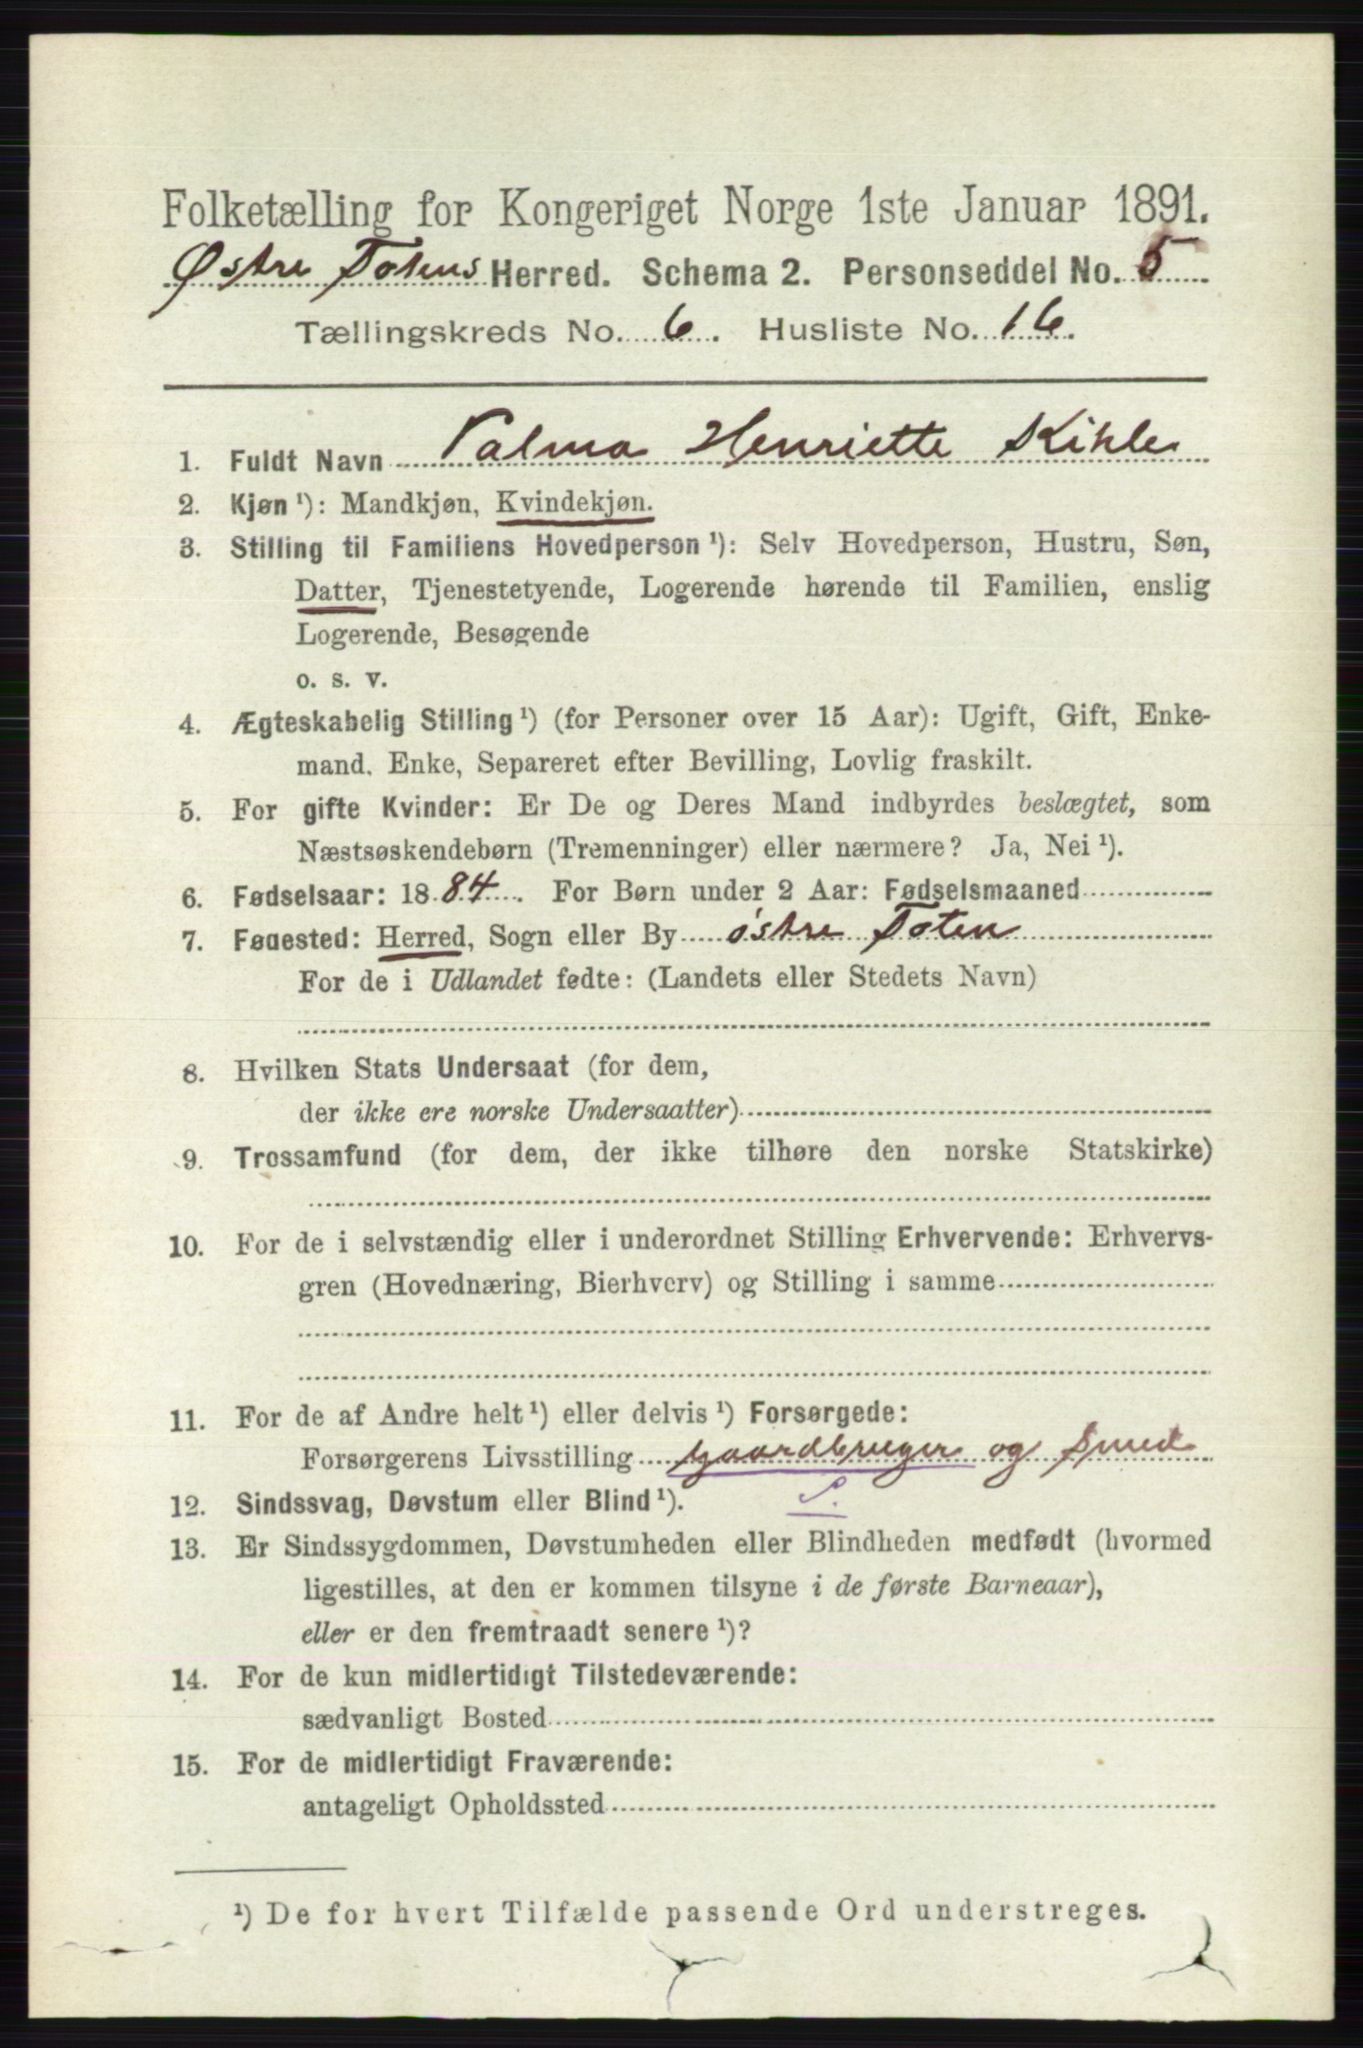 Folketælling for Kongeriget Norge 1ste Januar 1891.
Østre Totens Herred. Schema 2. Personseddel No. 5
Tællingskreds No. 6. Husliste No. 16.
1. Fuldt Navn Valma Henriette Kihle
2. Kjøn ¹): Mandkjøn, Kvindekjøn.
3. Stilling til Familiens Hovedperson ¹): Selv Hovedperson, Hustru, Søn,
Datter, Tjenestetyende, Logerende hørende til Familien, enslig
Logerende, Besøgende
o. s. v.
4. Ægteskabelig Stilling ¹) (for Personer over 15 Aar): Ugift, Gift, Enke-
mand, Enke, Separeret efter Bevilling, Lovlig fraskilt.
5. For gifte Kvinder: Er De og Deres Mand indbyrdes beslægtet, som
Næstsøskendebørn (Tremenninger) eller nærmere? Ja, Nei ¹).
6. Fødselsaar: 1884. For Børn under 2 Aar: Fødselsmaaned
7. Fødested: Herred, Sogn eller By østre Toten
For de i Udlandet fødte: (Landets eller Stedets Navn)
8. Hvilken Stats Undersaat (for dem,
der ikke ere norske Undersaatter)
9. Trossamfund (for dem, der ikke tilhøre den norske Statskirke)
10. For de i selvstændig eller i underordnet Stilling Erhvervende: Erhvervs-
gren (Hovednæring, Bierhverv) og Stilling i samme
11. For de af Andre helt ¹) eller delvis ¹) Forsørgede:
Forsørgerens Livsstilling Gaardbruger og Smed
12. Sindssvag, Døvstum eller Blind ¹). S.
13. Er Sindssygdommen, Døvstumheden eller Blindheden medfødt (hvormed
ligestilles, at den er kommen tilsyne i de første Barneaar),
eller er den fremtraadt senere ¹)?
14. For de kun midlertidigt Tilstedeværende:
sædvanligt Bosted
15. For de midlertidigt Fraværende:
antageligt Opholdssted
¹) De for hvert Tilfælde passende Ord understreges.